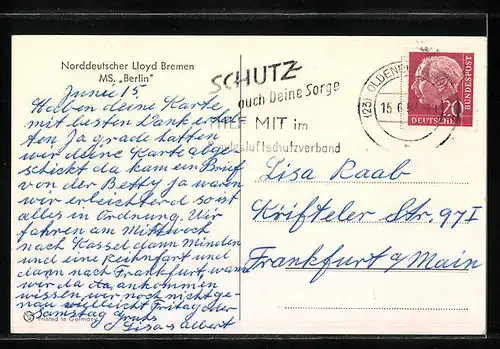 Norddeutscher Lloyd Bremen
MS. „Berlin"
June 15
Haben deine Karte
mit besten Dank erhal
ten Ja grade hatten
wir deine Karte abge
schickt da kam ein Brief
von der Betty ja waren
wir erleichterd so ist
alles in Ordnung. Wir
fahren am Mittwoch
nach Kassel dann Minden
und eine Reihnfart und
dann nach Frankfurt, wann
wir da da ankommen
wissen wir noch nicht ge-
nau vielleicht Fritag oder
Samstag Gruss
Lisa & Albert
Printed in Germany
SCHUTZ
auch Deine Sorge
HILF MIT im
Bundesluftschutzverband
(23) OLDENB
15.6.
DEUTSCHE
BUNDESPOST
20
Lisa Raab
Krifteler Str. 97 I
Frankfurt a/Main